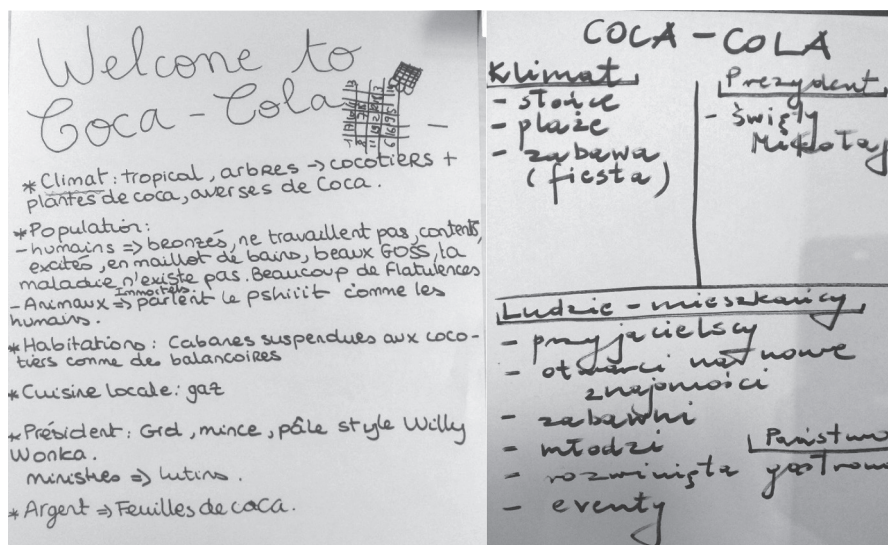 Welcone to
Coca-Cola
* Climat : tropical, arbres → cocotiers +
plantes de coca, averses de Coca.
* Population:
- humains => bronzés, ne travaillent pas, contents,
excités, en maillot de bains, beaux GOSS, la
maladie n'existe pas. Beaucoup de flatulences
Immortels.
- Animaux => parlent le pshiiit comme les
humains.
* Habitations : Cabanes suspendues aux coco-
tiers comme des balancoires
* Cuisine locale : gaz
* Président : Grd, mince, pâle style Willy
Wonka.
ministres => lutins.
* Argent => Feuilles de coca.
COCA - COLA
Klimat
- słońce
- plaże
- zabawa
(fiesta)
Prezydent
- święty
Mikołaj
Ludzie - mieszkańcy
- przyjacielscy
- otwarci na nowe
znajomości
- zabawni
- młodzi
- rozwinięta
- eventy
Państwo
gastrono